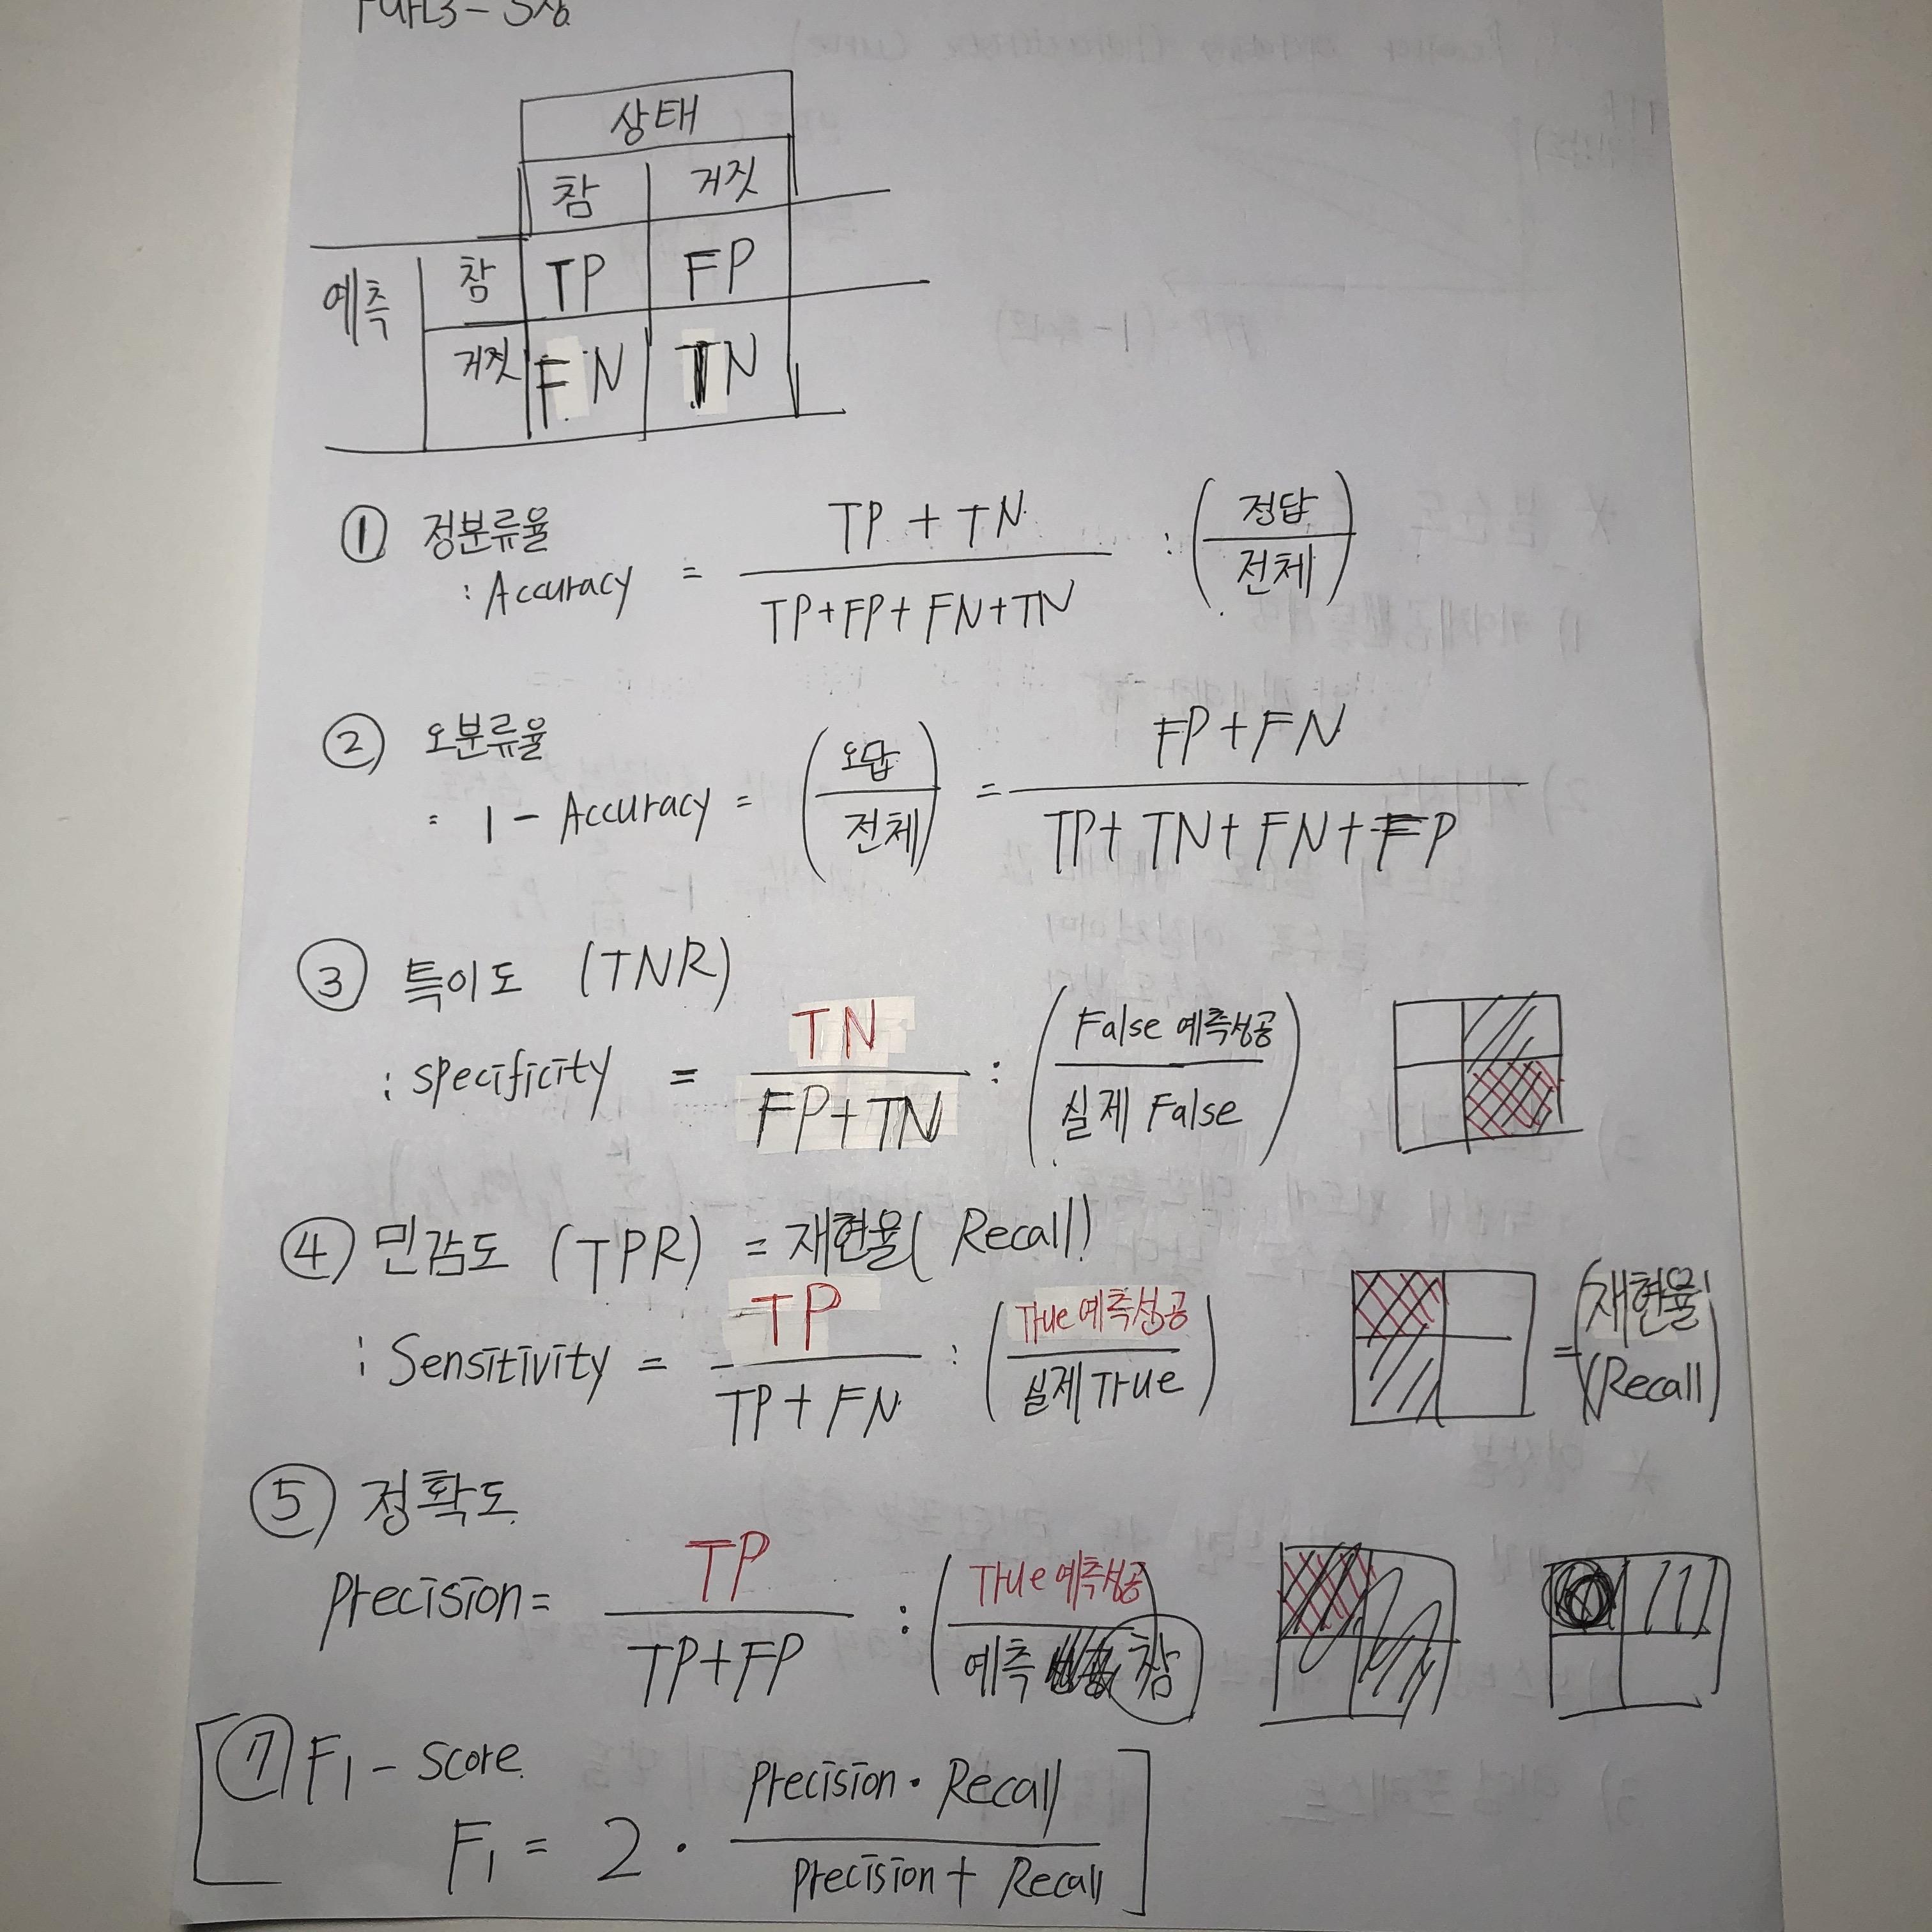 상태
참 거짓
예측 참 TP FP
거짓 FN TN
① 정분류율
: Accuracy = TP + TN / TP+FP+FN+TN : (정답 / 전체)
② 오분류율
= 1 - Accuracy = (오답 / 전체) = FP+FN / TP+TN+FN+FP
③ 특이도 (TNR)
: specificity = TN / FP+TN : (False 예측성공 / 실제 False)
④ 민감도 (TPR) = 재현율 (Recall)
: Sensitivity = TP / TP+FN : (True 예측성공 / 실제 True) = (재현율 (Recall)
⑤ 정확도
Precision = TP / TP+FP : (True 예측성공 / 예측 참)
⑦ F1 - Score
F1 = 2 · Precision · Recall / Precision + Recall